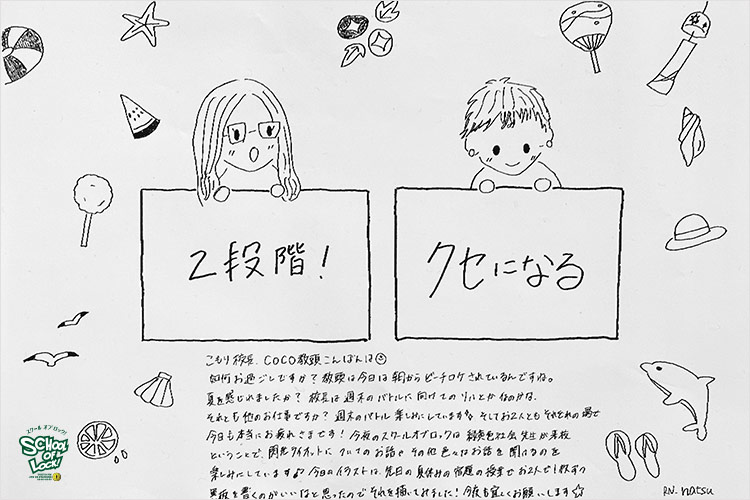 2段階!
クセになる
こもり校長、COCO教頭こんばんは
如何お過ごしですか?教頭は今日は朝からビーチロケされているんですね。
夏を感じれましたか?校長は週末のバトルへ向けてのリハとかなのかな、
それとも他のお仕事ですか?週末のバトル楽しみにしています そしてお2人ともそれぞれの場で
今日も本当にお疲れさまです!今夜のスクールオブロックは緑黄色社会先生が来校
ということで、閃光ライオットについてのお話やその他色々なお話を聞けるのを
楽しみにしています 今日のイラストは、先日の夏休みの宿題の授業でお2人とも教ずつ
黒板を書くのがいいなと思ったのでそれを描いてみました!今夜も宜しくお願いします☆
RN. natsu
スクール オブ ロック!
SCHOOL OF LOCK!